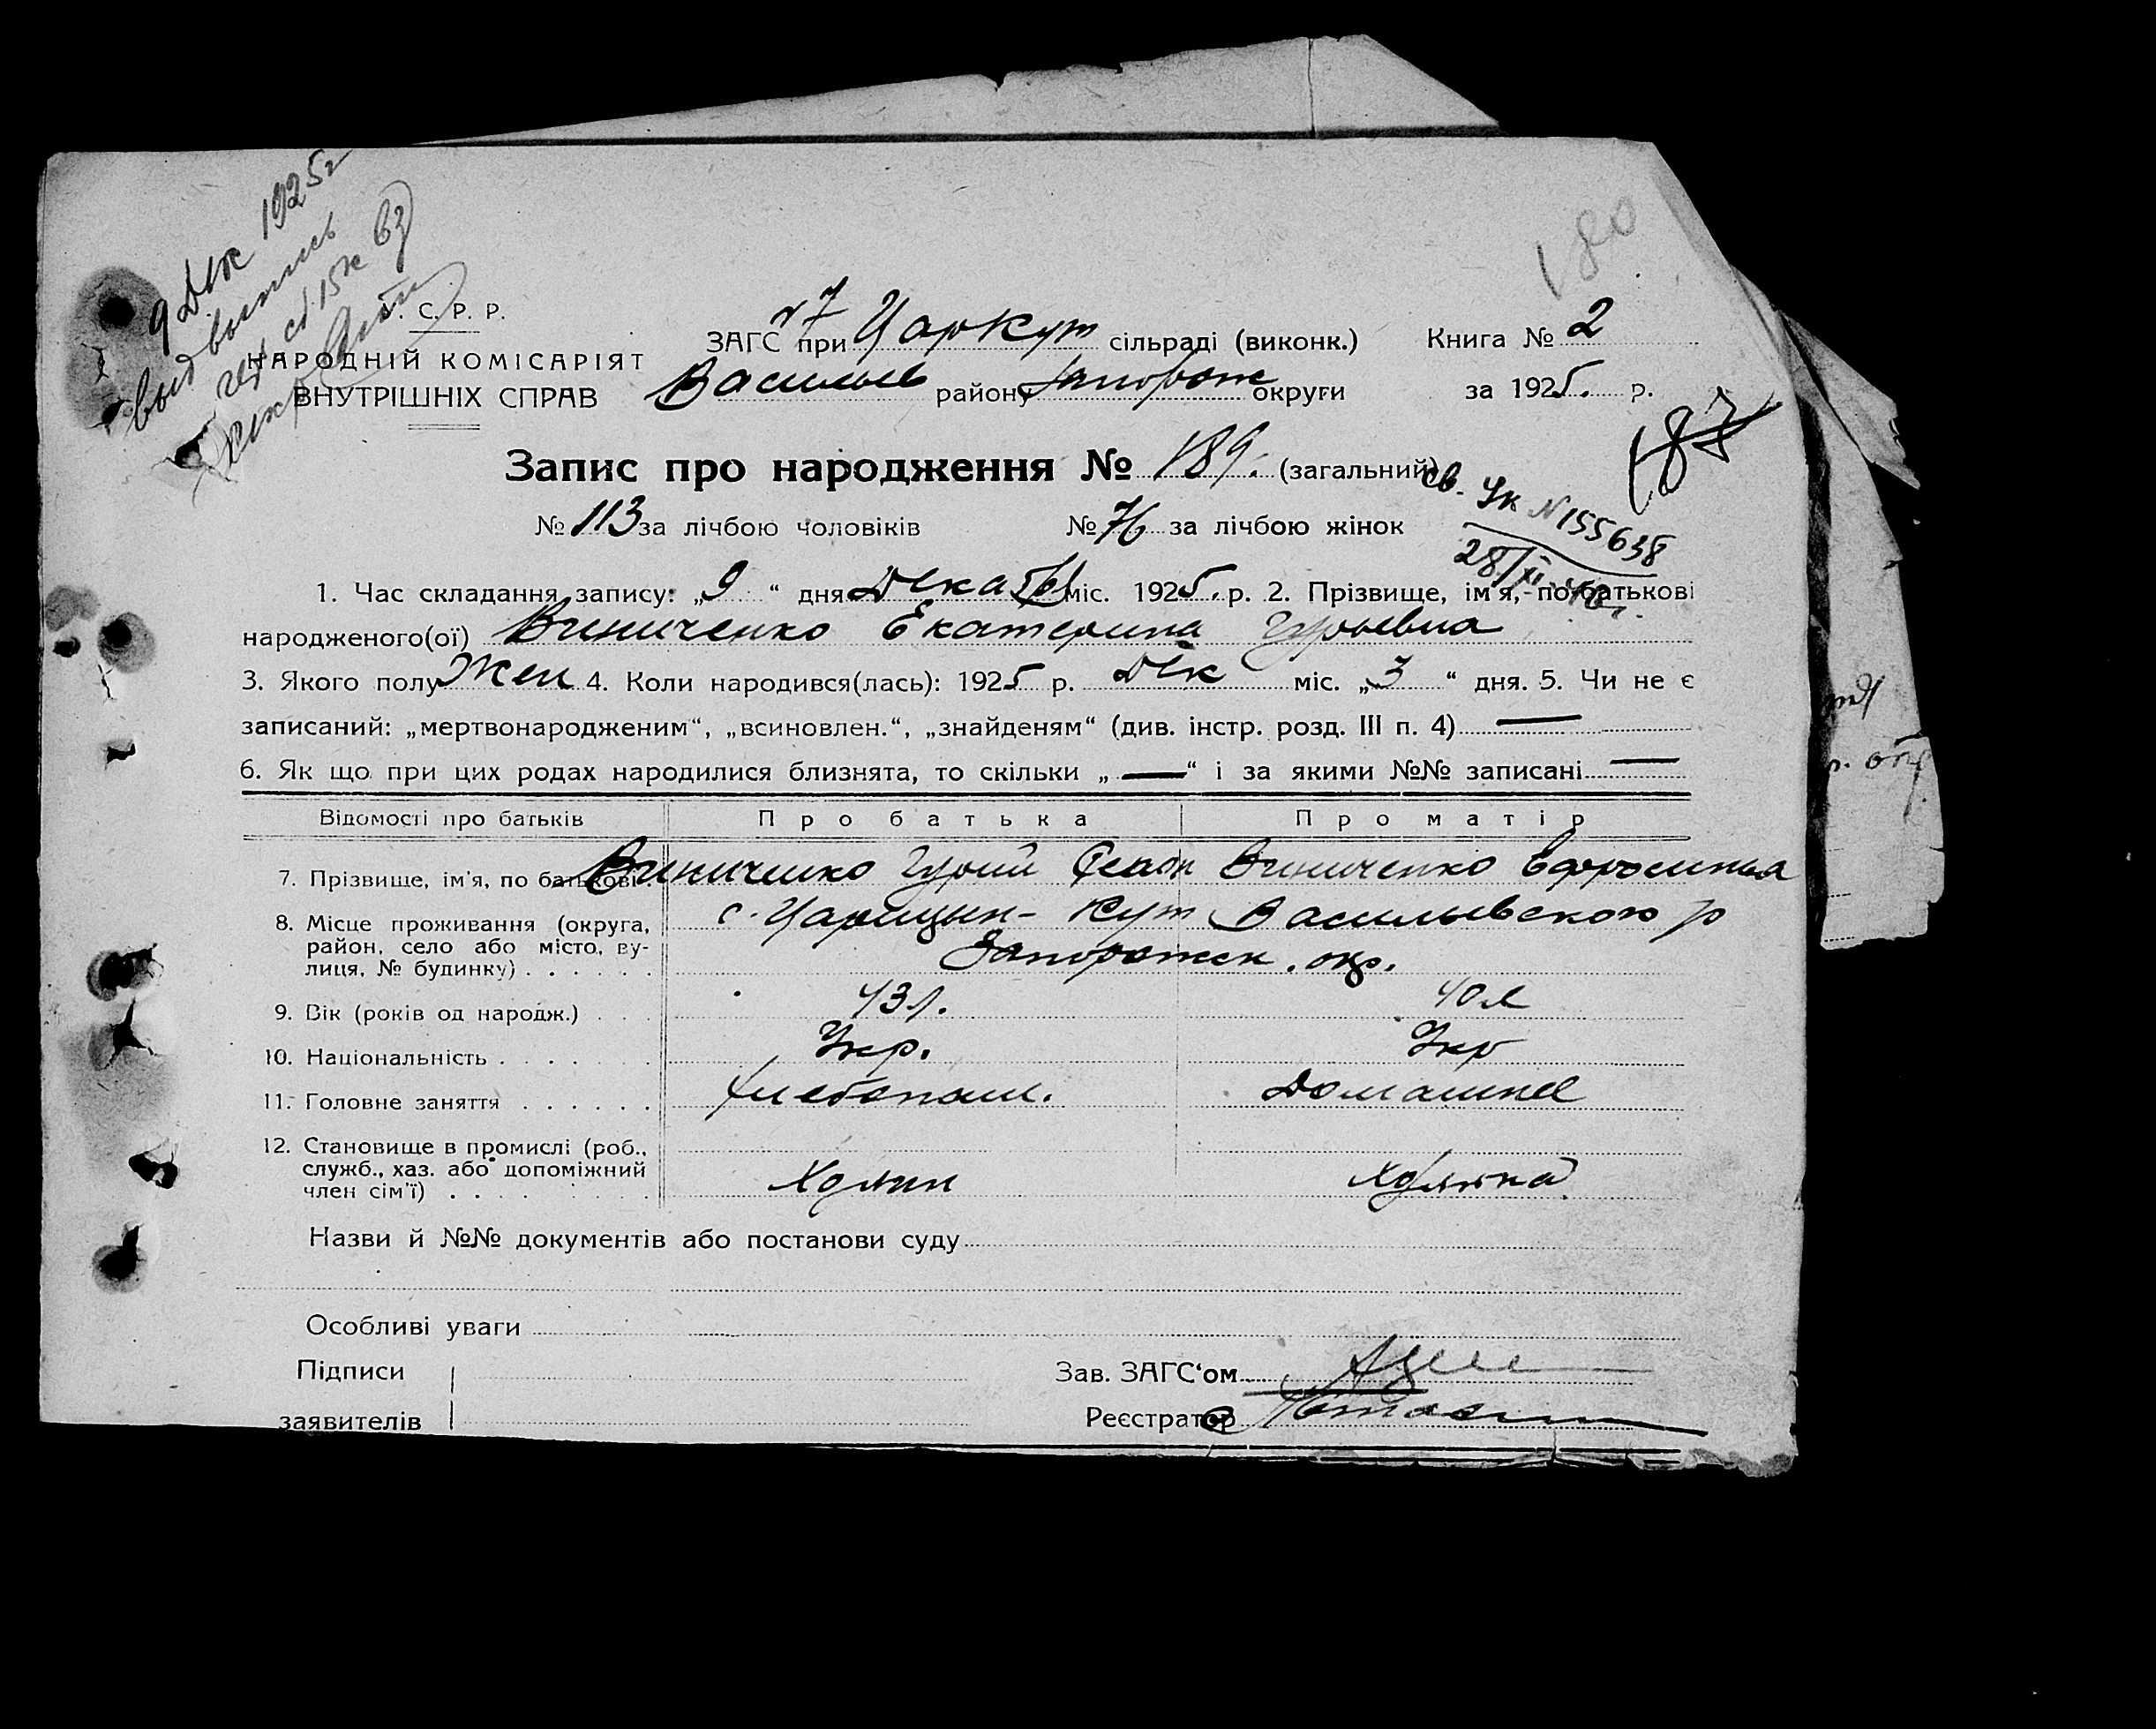 9 Дек 1925г
выд выпись
180
С. Р. Р.
НАРОДНІЙ КОМІСАРІЯТ
ВНУТРІШНІХ СПРАВ
ЗАГС при Царкут сільраді (виконк.) Книга № 2
Васильев району Запорож округи за 1925. р.
187
Запис про народження № 189. (загальний)
св. Ук N155638
№ 113 за лічбою чоловіків № 76 за лічбою жінок
28/XI
1. Час складання запису: „9“ дня Декабр міс. 1925. р. 2. Прізвище, ім'я, по батькові
народженого(ої) Виниченко Екатерина Гурьевна
3. Якого полу Жен 4. Коли народився(лась): 1925 р. Дек міс. „3“ дня. 5. Чи не є
записаний: „мертвонародженим“, „всиновлен.“, „знайденям“ (див. інстр. розд. III п. 4) —
6. Як що при цих родах народилися близнята, то скільки „—“ і за якими №№ записані —
Відомості про батьків Про батька Про матір
7. Прізвище, ім'я, по батькові. Виниченко Гурий Виниченко Ефросинья
8. Місце проживання (округа, с. Царицын-Кут Васильевского р
район, село або місто, ву- Запорожск. окр.
лиця, № будинку)
9. Вік (років од народж.) 43 л. 40 л
10. Національність Укр. Укр
11. Головне заняття Хлебопаш. Домашнее
12. Становище в промислі (роб.,
служб., хаз. або допоміжний Хозяин Хозяйка
член сім'ї)
Назви й №№ документів або постанови суду
Особливі уваги
Підписи Зав. ЗАГС‘ом
заявителів Реєстратор